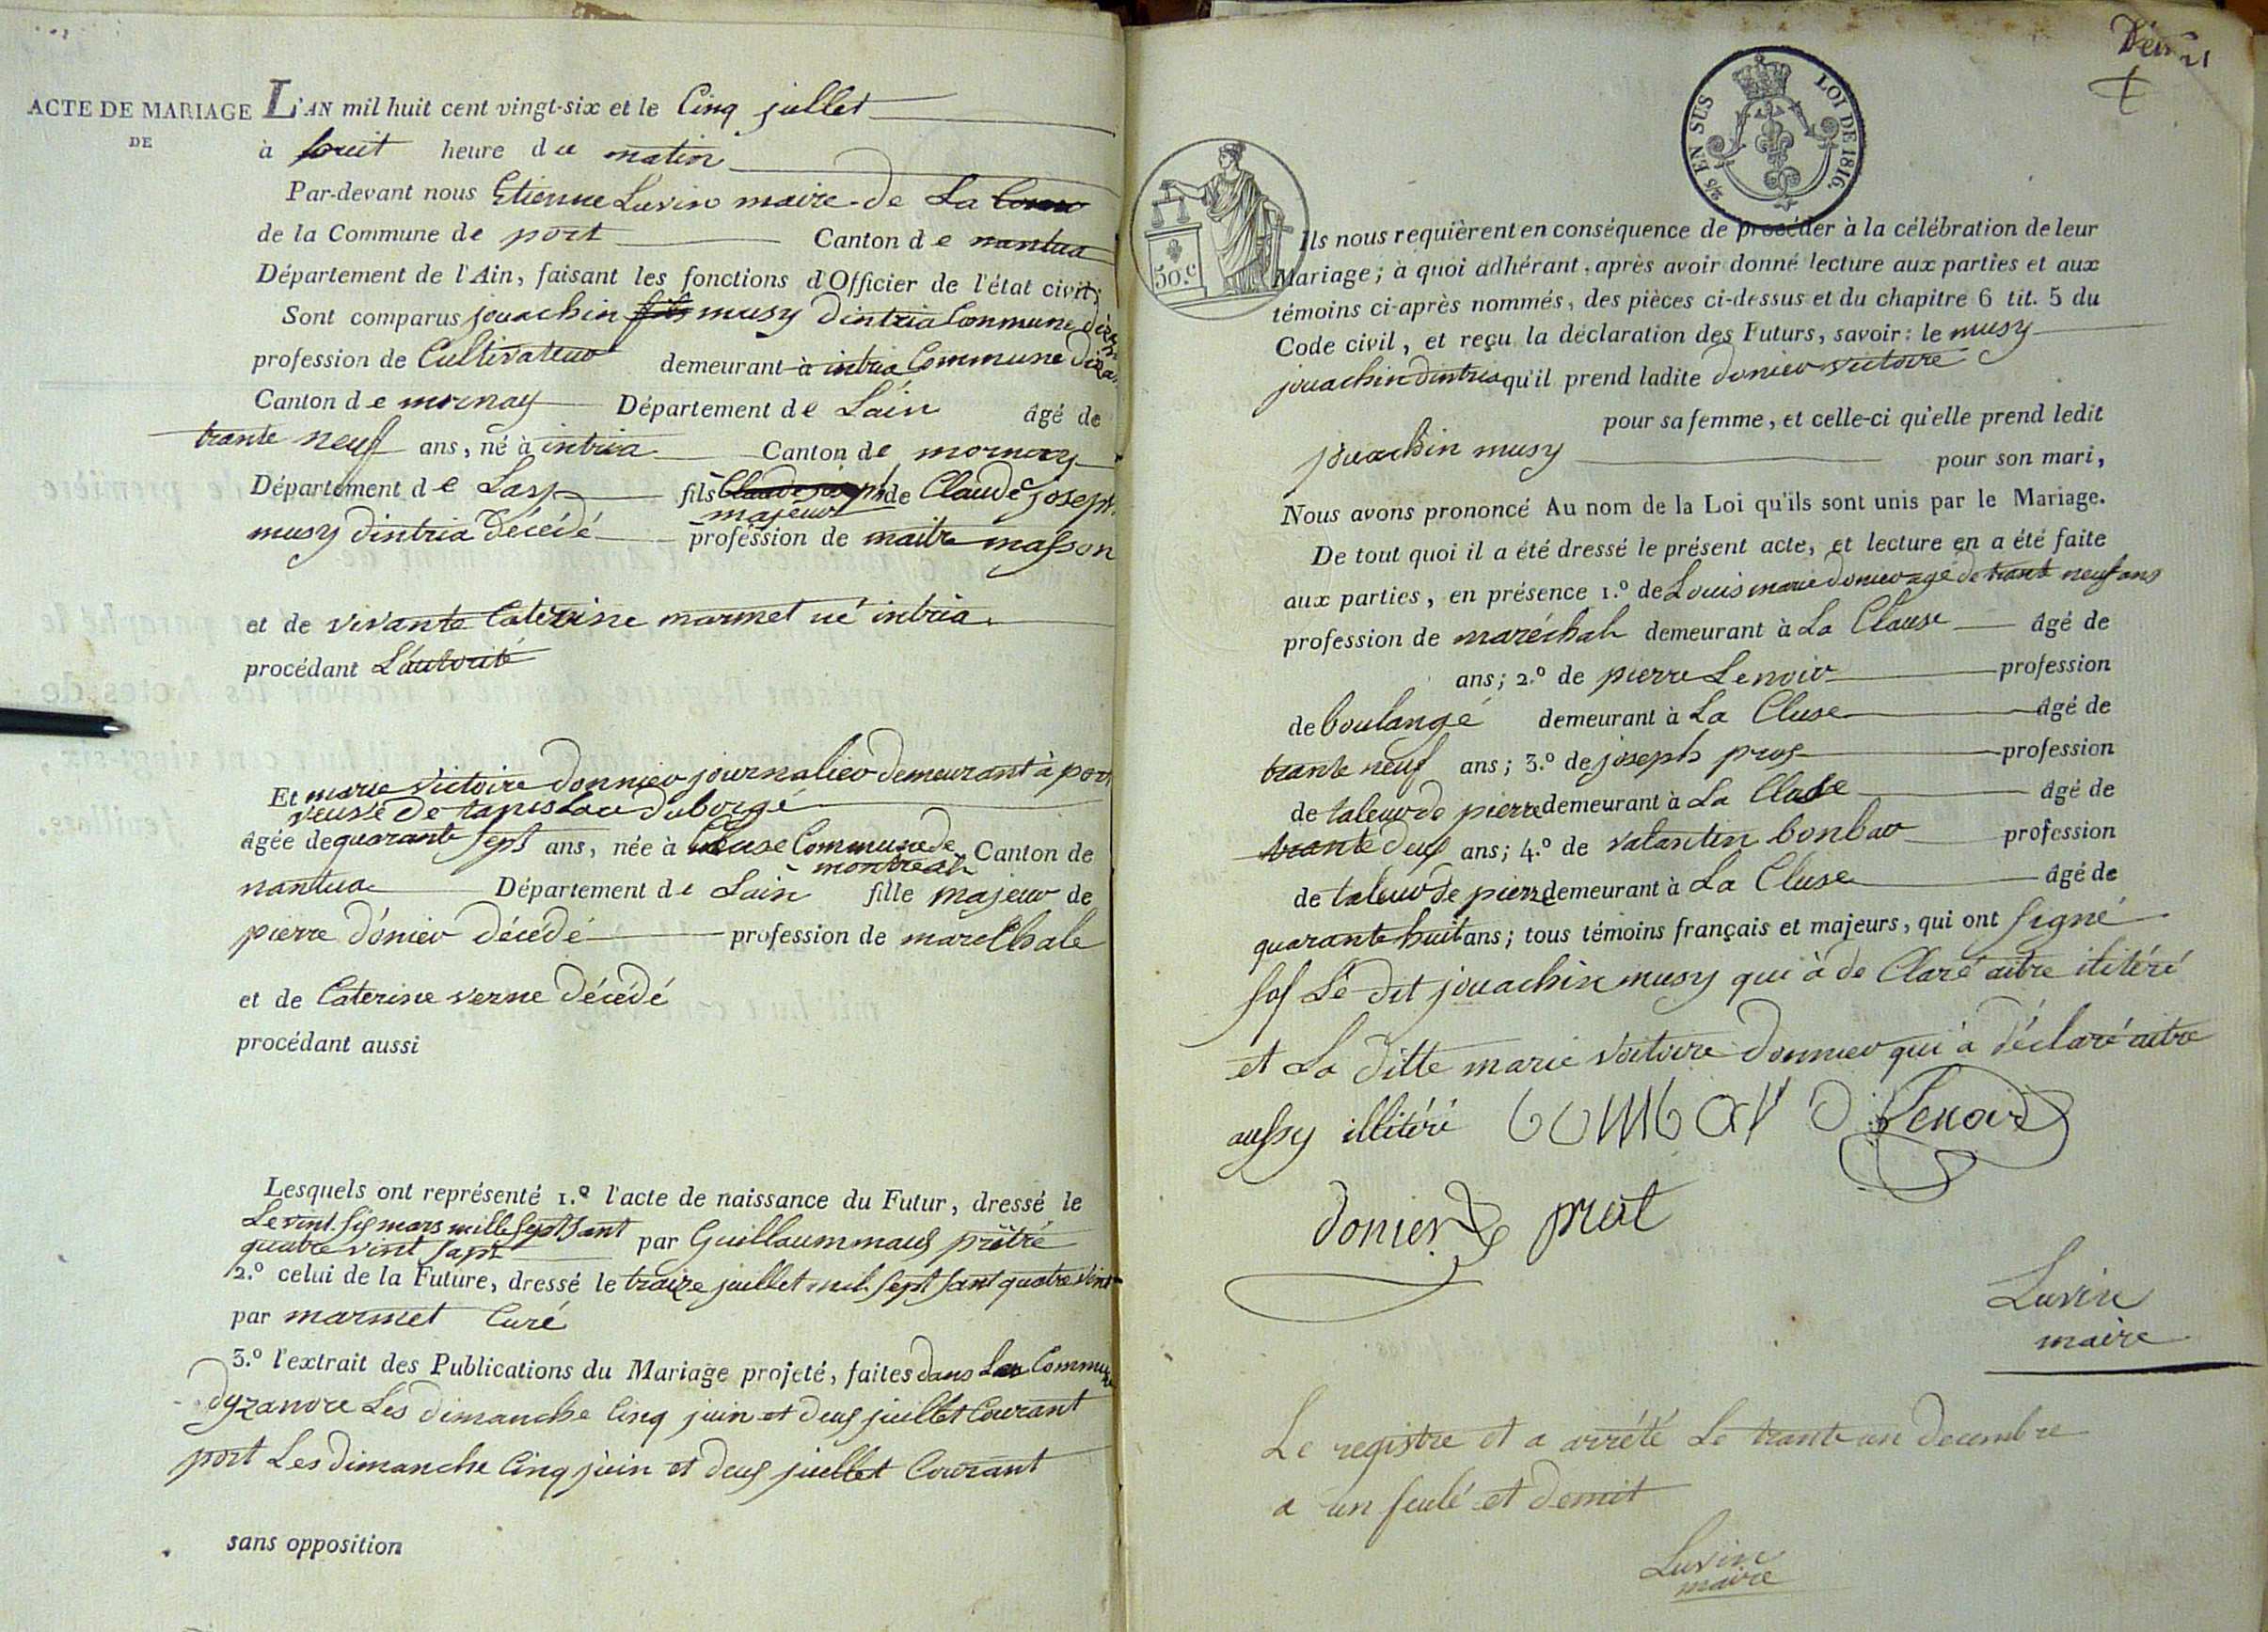 ACTE DE MARIAGE
DE
L'AN mil huit cent vingt-six et le Cinq juillet
à huit heure du matin
Par-devant nous Etienne Luvin maire de La
de la Commune de port Canton de nantua
Département de l'Ain, faisant les fonctions d'Officier de l'état civil;
Sont comparus jouachin fils musy dintria Commune
profession de Cultivateur demeurant à intria Commune
Canton de mornay Département de Lain âgé de
trante neuf ans, né à intria Canton de mornay
Département de fils Claude joseph de Claude joseph
majeur
musy dintria Décédé profession de maitre masson
et de vivante Caterine marmet né intria
procédant L'autorité
Et marie victoire donnier journalier demeurant à port
veuve de
âgée de quarante sept ans, née à Cluse Commune de Canton de
montréal
nantua Département de Lain fille majeur de
pierre donier décédé profession de marechale
et de Caterine verne décédé
procédant aussi
Lesquels ont représenté 1.º l'acte de naissance du Futur, dressé le
Le vint six mars mille sept sant
quatre vint sapt par Guillaummaux prêtre
2.º celui de la Future, dressé le traize juillet mil sept sant quatre vint
par marmet Curé
3.º l'extrait des Publications du Mariage projeté, faites dans La Commune
dyzanore Les dimanche Cinq juin et deux juillet Courant
port Les dimanche Cinq juin et deux juillet Courant
sans opposition
2/5 EN SUS LOI DE 1816.
50.c
Ils nous requièrent en conséquence de procéder à la célébration de leur
Mariage; à quoi adhérant, après avoir donné lecture aux parties et aux
témoins ci-après nommés, des pièces ci-dessus et du chapitre 6 tit. 5 du
Code civil, et reçu la déclaration des Futurs, savoir: le musy
jouachin dintria qu'il prend ladite donier victoire
pour sa femme, et celle-ci qu'elle prend ledit
jouachin musy pour son mari,
Nous avons prononcé Au nom de la Loi qu'ils sont unis par le Mariage.
De tout quoi il a été dressé le présent acte, et lecture en a été faite
aux parties, en présence 1.º de Louis marie donier agé de trant neuf ans
profession de maréchal demeurant à La Cluse âgé de
ans; 2.º de pierre Lenoir profession
de boulangé demeurant à La Cluse âgé de
trante neuf ans; 3.º de joseph profession
de taleur de pierre demeurant à La Cluse âgé de
trante deux ans; 4.º de valantin bonbar profession
de taleur de pierre demeurant à La Cluse âgé de
quarante huit ans; tous témoins français et majeurs, qui ont signé
sof Le dit jouachin musy qui à de Claré aitre ilitéré
et La ditte marie voitoire donnier qui à déclaré aitre
aussy illitéré bombar Lenoir
donier prot
Luvin
maire
Le registre et a arrété Le trante un decembre
a un feulé et demit
Luvin
maire